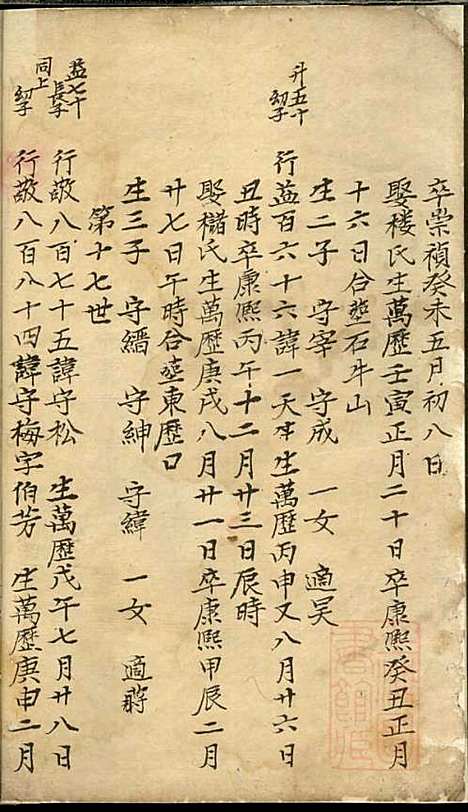 卒崇禎癸未五月初八日
娶楼氏生萬歷壬寅正月二十日卒康熙癸丑正月
十六日合塟石牛山
生二子 守宰 守成 一女 適吴
升五十
幼子
行益百六十六諱一天生萬歷丙申又八月廿六日
丑時卒康熙丙午十二月廿三日辰時
娶櫧氏生萬歷庚戌八月廿一日卒康熙甲辰二月
廿七日午時合塟東歷口
生三子 守縉 守紳 守緯 一女 適蔣
第十七世
益七十
長子
行敬八百七十五諱守松 生萬歷戊午七月廿八日
同上
幼子
行敬八百八十四諱守梅字伯芳 生萬歷庚申二月